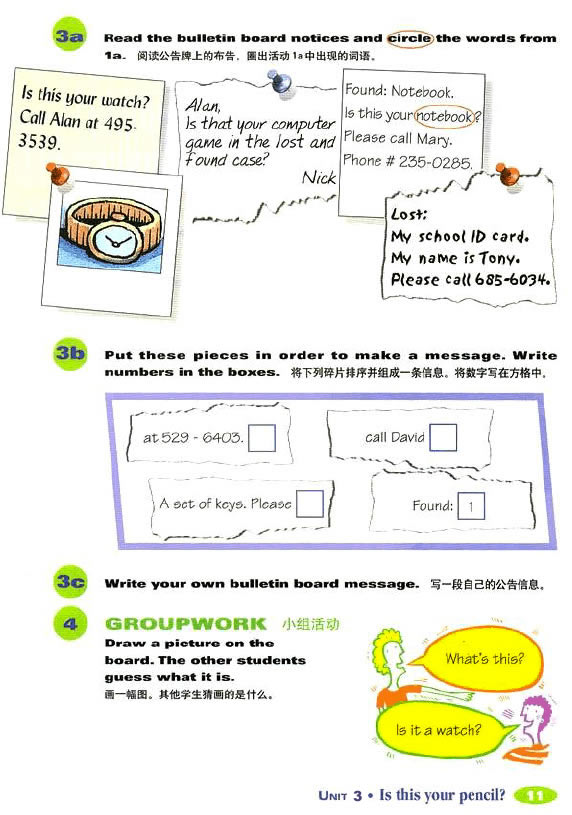 3a Read the bulletin board notices and circle the words from
1a. 阅读公告牌上的布告，圈出活动1a中出现的词语。
Is this your watch?
Call Alan at 495-
3539.
Alan,
Is that your computer
game in the lost and
found case?
Nick
Found: Notebook.
Is this your notebook?
Please call Mary.
Phone # 235-0285.
Lost:
My school ID card.
My name is Tony.
Please call 685-6034.
3b Put these pieces in order to make a message. Write
numbers in the boxes. 将下列碎片排序并组成一条信息。将数字写在方格中。
at 529 - 6403.
call David
A set of keys. Please
Found: 1
3c Write your own bulletin board message. 写一段自己的公告信息。
4 GROUPWORK 小组活动
Draw a picture on the
board. The other students
guess what it is.
画一幅图。其他学生猜画的是什么。
What's this?
Is it a watch?
UNIT 3 • Is this your pencil? 11